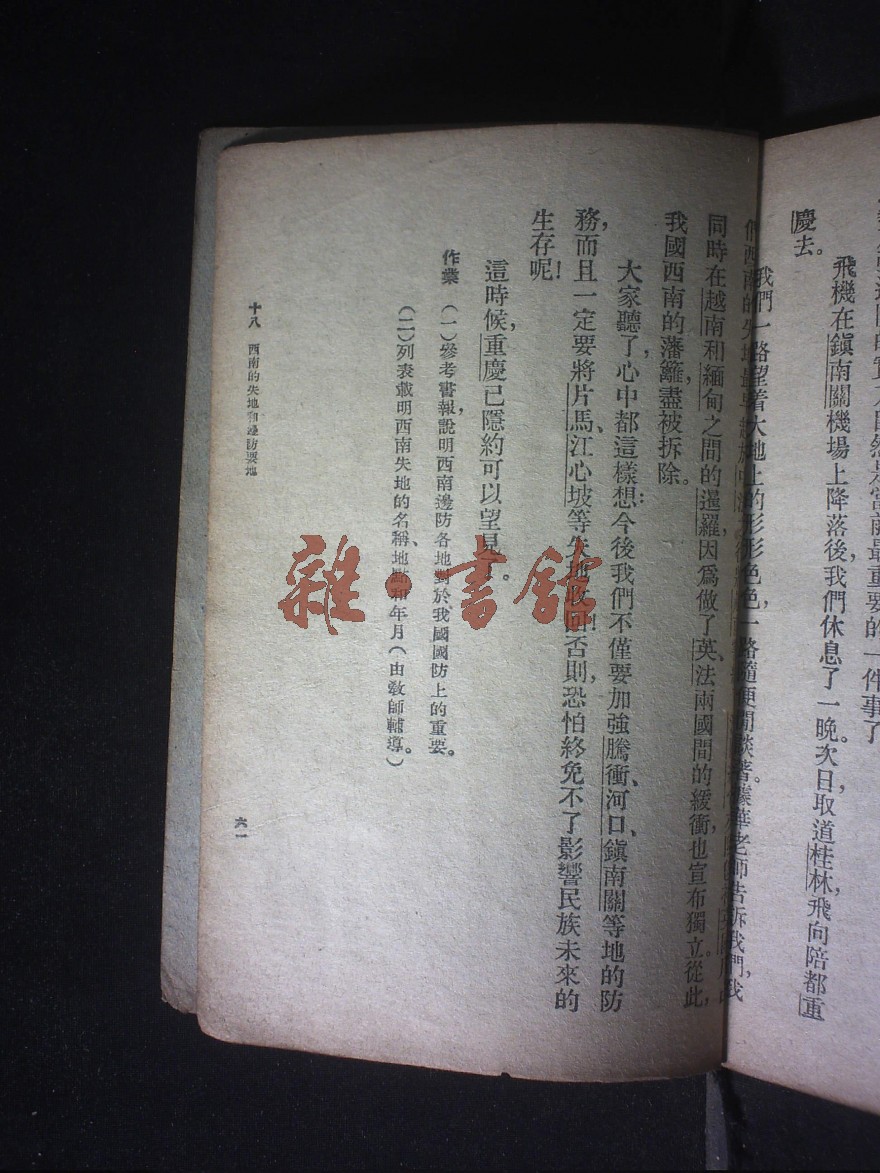 最重要的一件事了
慶去。
飛機在鎮南關機場上降落後，我們休息了一晚。次日取道桂林，飛向陪都重
我們一路望着大地上的形形色色，一路隨便閒談着。華老師告訴我們，我
們西南的失地
同時在越南和緬甸之間的暹羅，因爲做了英、法兩國間的緩衝，也宣布獨立。從此，
我國西南的藩籬，盡被拆除。
大家聽了，心中都這樣想：今後我們不僅要加強騰衝、河口、鎮南關等地的防
務，而且一定要將片馬、江心坡等失地收回！否則，恐怕終免不了影響民族未來的
生存呢！
這時候，重慶已隱約可以望見了。
作業　（一）參考書報，說明西南邊防各地對於我國國防上的重要。
（二）列表載明西南失地的名稱、地點和年月（由教師輔導。）
十八　西南的失地和邊防要地
六一
雜·書館